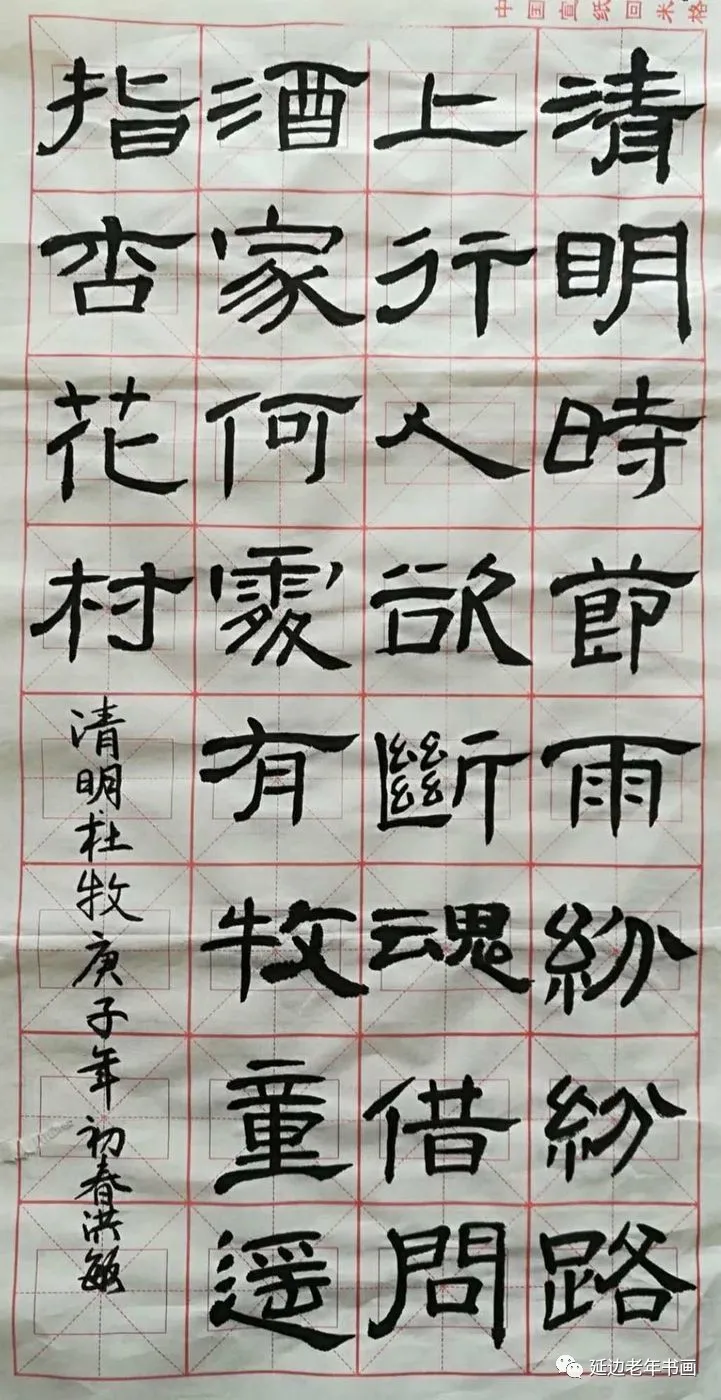 中国宣纸回米格
清明時節雨紛紛路
上行人欲斷魂借問
酒家何處有牧童遥
指杏花村
清明杜牧庚子年初春洪敏
延边老年书画